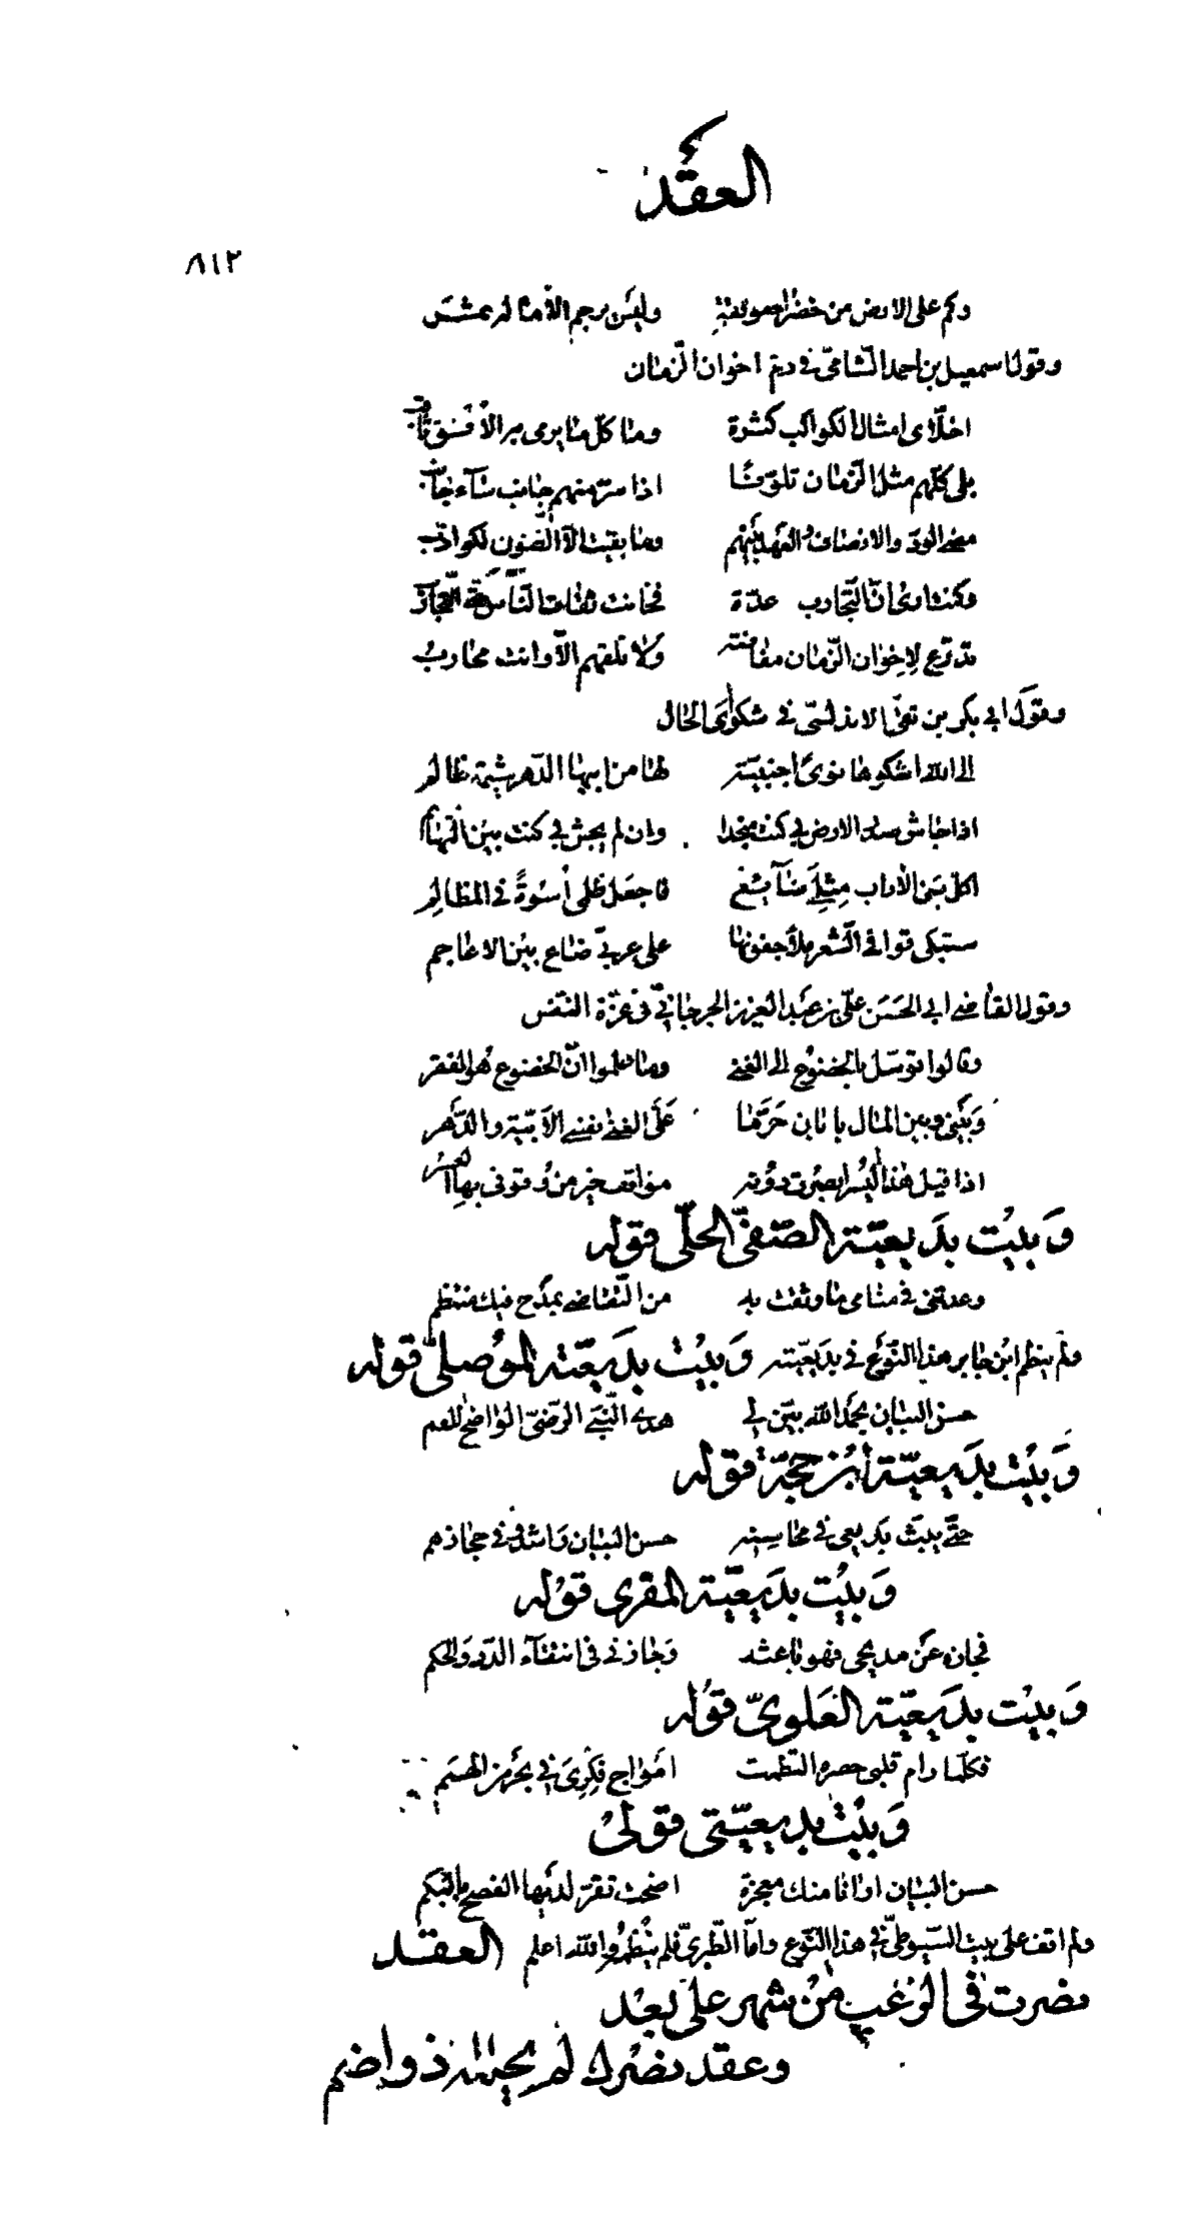 العقد
٨١٢
وكم على الارض من خضراء مورقة وليس يرجم الا ما له ثمر
وقول اسمعيل بن احمد الشاشى فى ذم اخوان الزمان
اخلاى امثال الكواكب كثرة وما كل ما يرمى به الافق ثاقب
بلى كلهم مثل الزمان تلونا اذا سر منهم جانب ساء جانب
مضى الود والانصاف والعهد بينهم وما بقيت الا الظنون الكواذب
وكنت ارى ان التجارب عدة فخانت ثقات الناس حتى التجارب
تدرع لاخوان الزمان مفاضة ولا تلقهم الا وانت محارب
وقول ابى بكر بن تقى الاندلسى فى شكوى الحال
الى الله اشكوها نوى اجنبية لها من ابيها الدهر شيمة ظالم
اذا جاش صدر الارض بى كنت منجدا وان لم يجش بى كنت بين التهائم
اكل بنى الاداب مثلى ضائع فاجعل ظلى اسوة فى المظالم
ستبكى قوافى الشعر ملأ جفونها على عربى ضاع بين الاعاجم
وقول القاضى ابى الحسن على بن عبد العزيز الجرجانى فى عزة النفس
وقالوا توصل بالخضوع الى الغنى وما علموا ان الخضوع هو الفقر
وبينى وبين المال بابان حرما على الغنى نفسى الابية والدهر
اذا قيل هذا اليسر ابصرت دونه مواقف خير من وقوفى بها العسر
وبيت بديعية الصفى الحلى قوله
وعدتنى فى منامى ما وثقت به من التقاضى بمدح فيك منتظم
ولم ينظم ابن جابر هذا النوع فى بديعيته وبيت بديعية الموصلى قوله
حسن البيان بحمد الله بين لى هدى النبى الرضى الواضح اللقم
وبيت بديعية ابن حجة قوله
حتى يبث بديعى فى محاسنه حسن البيان واشدو فى حجازهم
وبيت بديعية المقرى قوله
فجاز عن مديحى فهو باعثه وجاز بى فى انتقاء الدر والحكم
وبيت بديعية العلوى قوله
فكلما رام قلبى حصره التطمت امواج فكرى فى بحر من الهمم
وبيت بديعيتى قولى
حسن البيان ارانا منك معجزة اضحت تقر لديها الفصح بالبكم
ولم اقف على بيت السيوطى فى هذا النوع واما الطبرى فلم ينظمه والله اعلم العقد
نصرت فى الرعب من شهر على بعد
وعقد نصرك لم يحلله ذو اضم